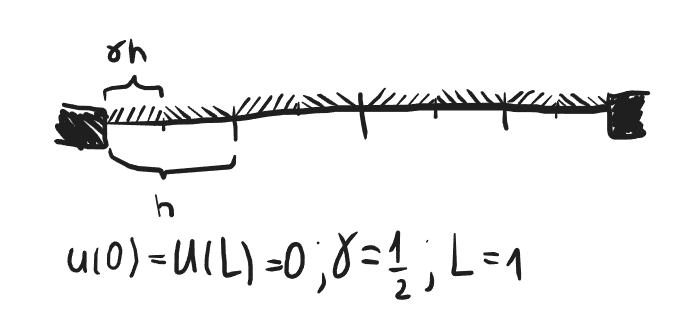 γh
h
u(0) = U(L) = 0 ; γ = 1/2 ; L = 1